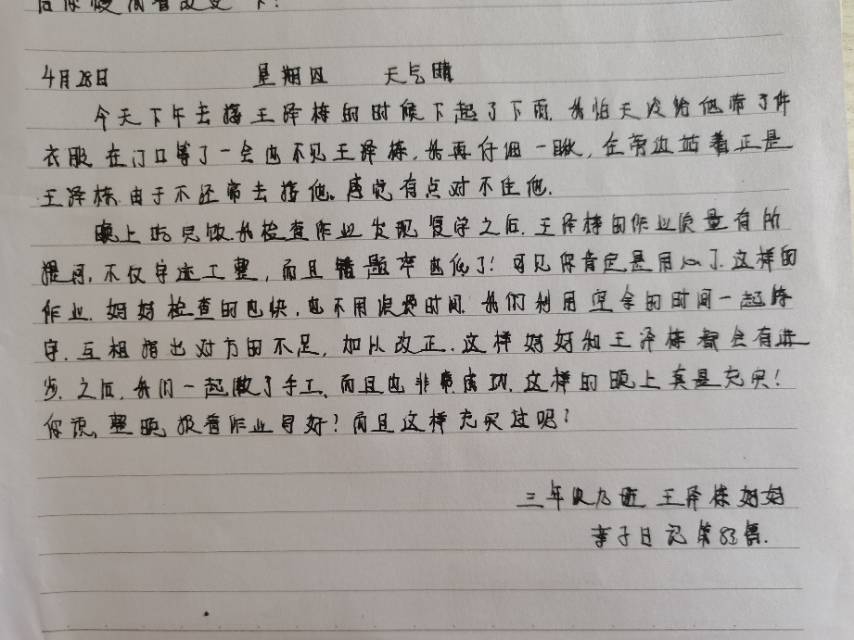 后你慢慢看改变一下!
4月28日 星期四 天气晴
今天下午去接王泽栋的时候下起了下雨.我怕天凉给他带了件
衣服.在门口等了一会也不见王泽栋,我再仔细一瞅,在旁边站着正是
王泽栋.由于不经常去接他.感觉有点对不住他.
晚上吃完饭.我检查作业发现复学之后.王泽栋的作业质量有所
提高,不仅字迹工整,而且错题率也低了!可见你肯定是用心了.这样的
作业.妈妈检查的也快,也不用浪费时间.我们利用空余的时间一起练
字.互相指出对方的不足,加以改正.这样妈妈和王泽栋都会有进
步.之后,我们一起做了手工,而且也非常成功.这样的晚上真是充实!
你说,整晚 作业 好?而且这样充实过呢?
三年级九班 王泽栋妈妈
亲子日记第83篇.